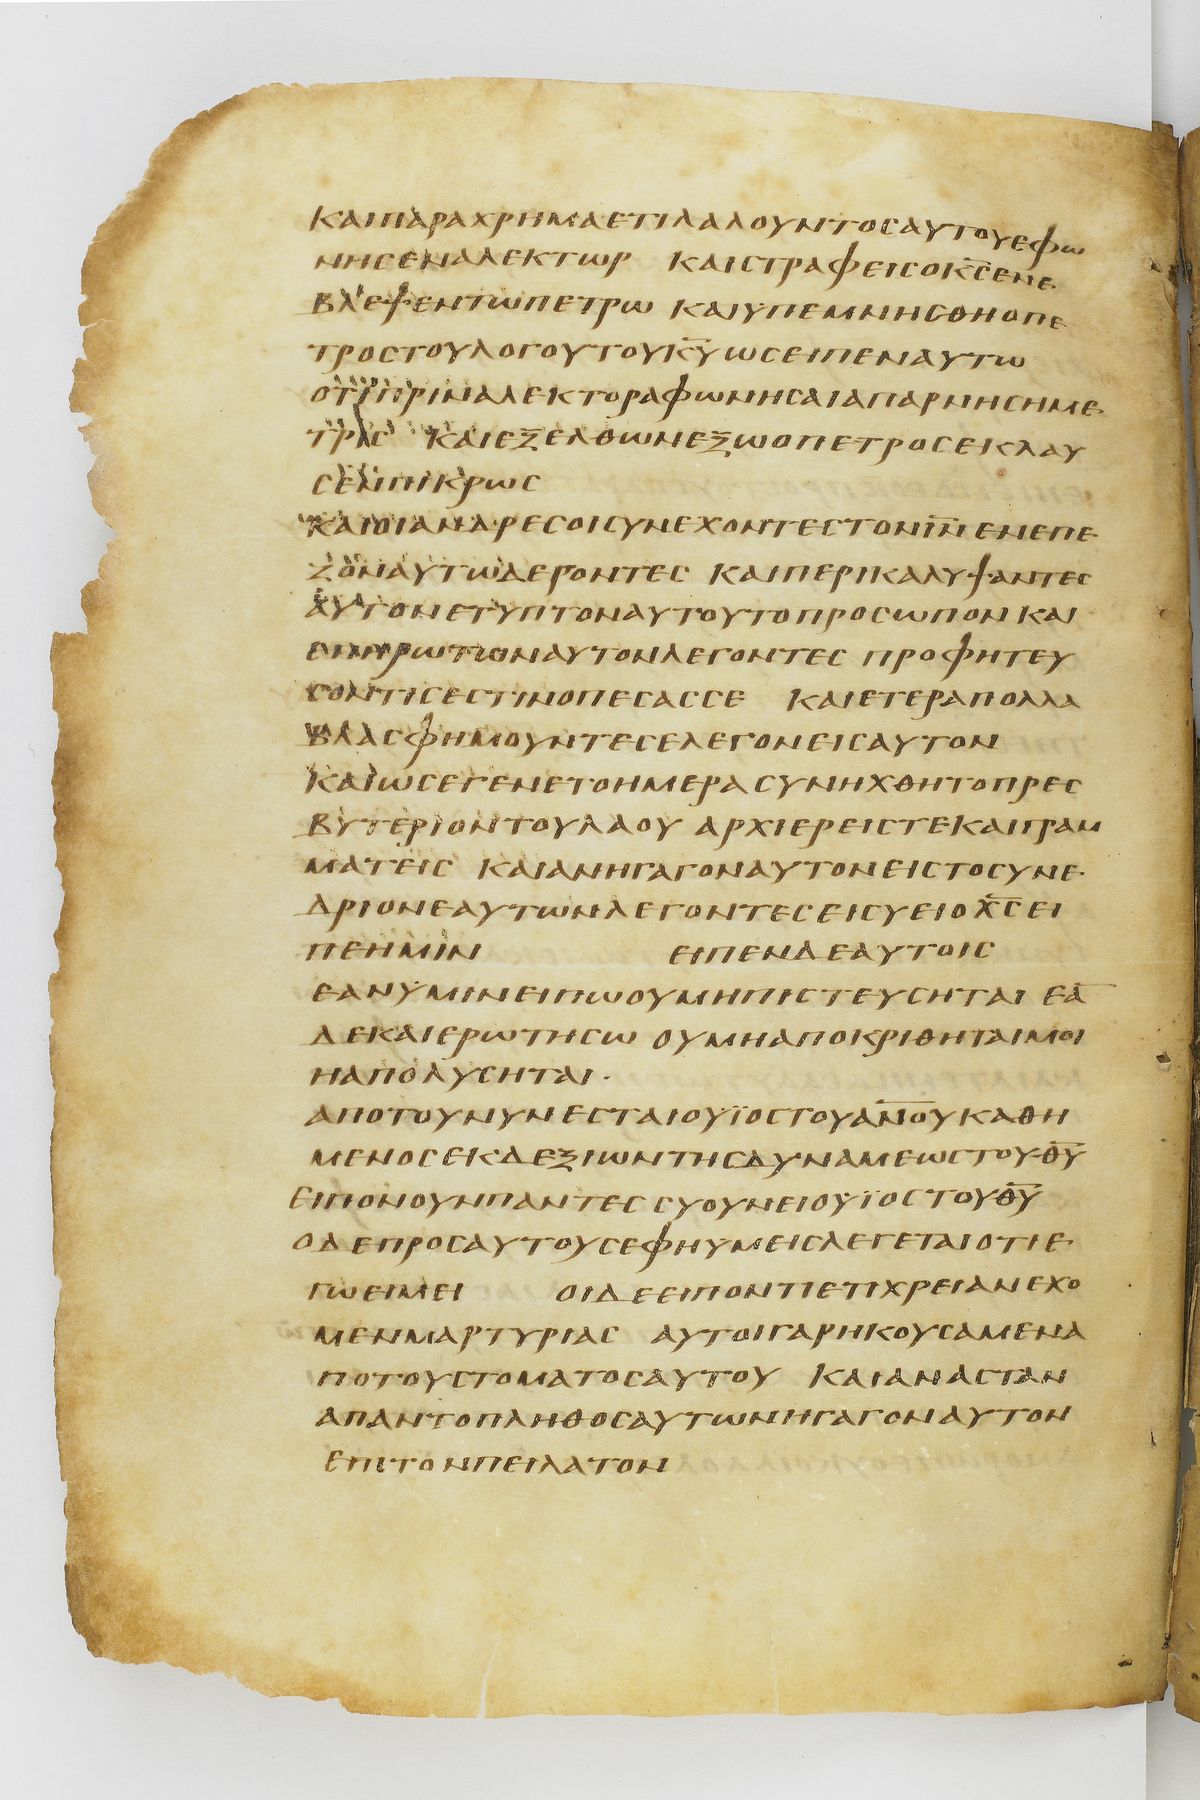 ΚΑΙΠΑΡΑΧΡΗΜΑΕΤΙΛΑΛΟΥΝΤΟΣΑΥΤΟΥΕΦΩ
ΝΗΣΕΝΑΛΕΚΤΩΡ ΚΑΙΣΤΡΑΦΕΙΣΟΚ̅Σ̅ΕΝΕ
ΒΛΕΨΕΝΤΩΠΕΤΡΩ ΚΑΙΥΠΕΜΝΗΣΘΗΟΠΕ
ΤΡΟΣΤΟΥΛΟΓΟΥΤΟΥΚ̅Υ̅ΩΣΕΙΠΕΝΑΥΤΩ
ΟΤΙΠΡΙΝΑΛΕΚΤΟΡΑΦΩΝΗΣΑΙΑΠΑΡΝΗΣΗΜΕ
ΤΡΙΣ ΚΑΙΕΞΕΛΘΩΝΕΞΩΟΠΕΤΡΟΣΕΚΛΑΥ
ΣΕΝΠΙΚΡΩΣ
ΚΑΙΟΙΑΝΔΡΕΣΟΙΣΥΝΕΧΟΝΤΕΣΤΟΝΙ̅Ν̅ΕΝΕΠΕ
ΖΟΝΑΥΤΩΔΕΡΟΝΤΕΣ ΚΑΙΠΕΡΙΚΑΛΥΨΑΝΤΕΣ
ΑΥΤΟΝΕΤΥΠΤΟΝΑΥΤΟΥΤΟΠΡΟΣΩΠΟΝΚΑΙ
ΕΠΗΡΩΤΩΝΑΥΤΟΝΛΕΓΟΝΤΕΣ ΠΡΟΦΗΤΕΥ
ΣΟΝΤΙΣΕΣΤΙΝΟΠΕΣΑΣΣΕ ΚΑΙΕΤΕΡΑΠΟΛΛΑ
ΒΛΑΣΦΗΜΟΥΝΤΕΣΕΛΕΓΟΝΕΙΣΑΥΤΟΝ
ΚΑΙΩΣΕΓΕΝΕΤΟΗΜΕΡΑΣΥΝΗΧΘΗΤΟΠΡΕΣ
ΒΥΤΕΡΙΟΝΤΟΥΛΑΟΥ ΑΡΧΙΕΡΕΙΣΤΕΚΑΙΓΡΑΜ
ΜΑΤΕΙΣ ΚΑΙΑΝΗΓΑΓΟΝΑΥΤΟΝΕΙΣΤΟΣΥΝΕ
ΔΡΙΟΝΕΑΥΤΩΝΛΕΓΟΝΤΕΣΕΙΣΥΕΙΟΧ̅Σ̅ΕΙ
ΠΕΗΜΙΝ ΕΙΠΕΝΔΕΑΥΤΟΙΣ
ΕΑΝΥΜΙΝΕΙΠΩΟΥΜΗΠΙΣΤΕΥΣΗΤΑΙ ΕΑ̅
ΔΕΚΑΙΕΡΩΤΗΣΩ ΟΥΜΗΑΠΟΚΡΙΘΗΤΑΙΜΟΙ
ΗΑΠΟΛΥΣΗΤΑΙ·
ΑΠΟΤΟΥΝΥΝΕΣΤΑΙΟΥΪΟΣΤΟΥΑ̅Ν̅ΟΥΚΑΘΗ
ΜΕΝΟΣΕΚΔΕΞΙΩΝΤΗΣΔΥΝΑΜΕΩΣΤΟΥΘ̅Υ̅
ΕΙΠΟΝΟΥΝΠΑΝΤΕΣ ΣΥΟΥΝΕΙΟΥΪΟΣΤΟΥΘ̅Υ̅
ΟΔΕΠΡΟΣΑΥΤΟΥΣΕΦΗΥΜΕΙΣΛΕΓΕΤΑΙΟΤΙΕ
ΓΩΕΙΜΕΙ ΟΙΔΕΕΙΠΟΝΤΙΕΤΙΧΡΕΙΑΝΕΧΟ
ΜΕΝΜΑΡΤΥΡΙΑΣ ΑΥΤΟΙΓΑΡΗΚΟΥΣΑΜΕΝΑ
ΠΟΤΟΥΣΤΟΜΑΤΟΣΑΥΤΟΥ ΚΑΙΑΝΑΣΤΑΝ
ΑΠΑΝΤΟΠΛΗΘΟΣΑΥΤΩΝΗΓΑΓΟΝΑΥΤΟΝ
ΕΠΙΤΟΝΠΕΙΛΑΤΟΝ